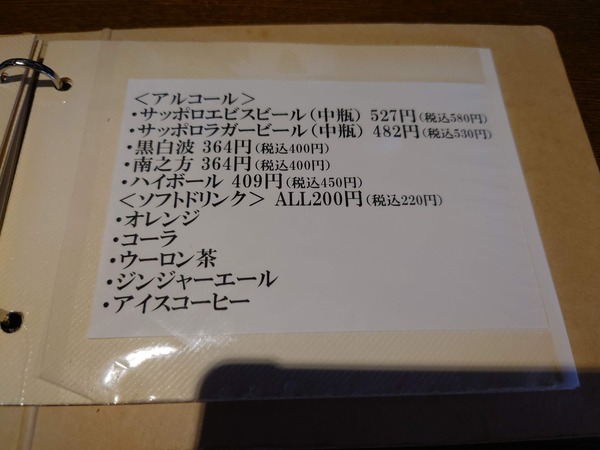 ＜アルコール＞
・サッポロエビスビール（中瓶） 527円（税込580円）
・サッポロラガービール（中瓶） 482円（税込530円）
・黒白波 364円（税込400円）
・南之方 364円（税込400円）
・ハイボール 409円（税込450円）
＜ソフトドリンク＞ ALL200円（税込220円）
・オレンジ
・コーラ
・ウーロン茶
・ジンジャーエール
・アイスコーヒー